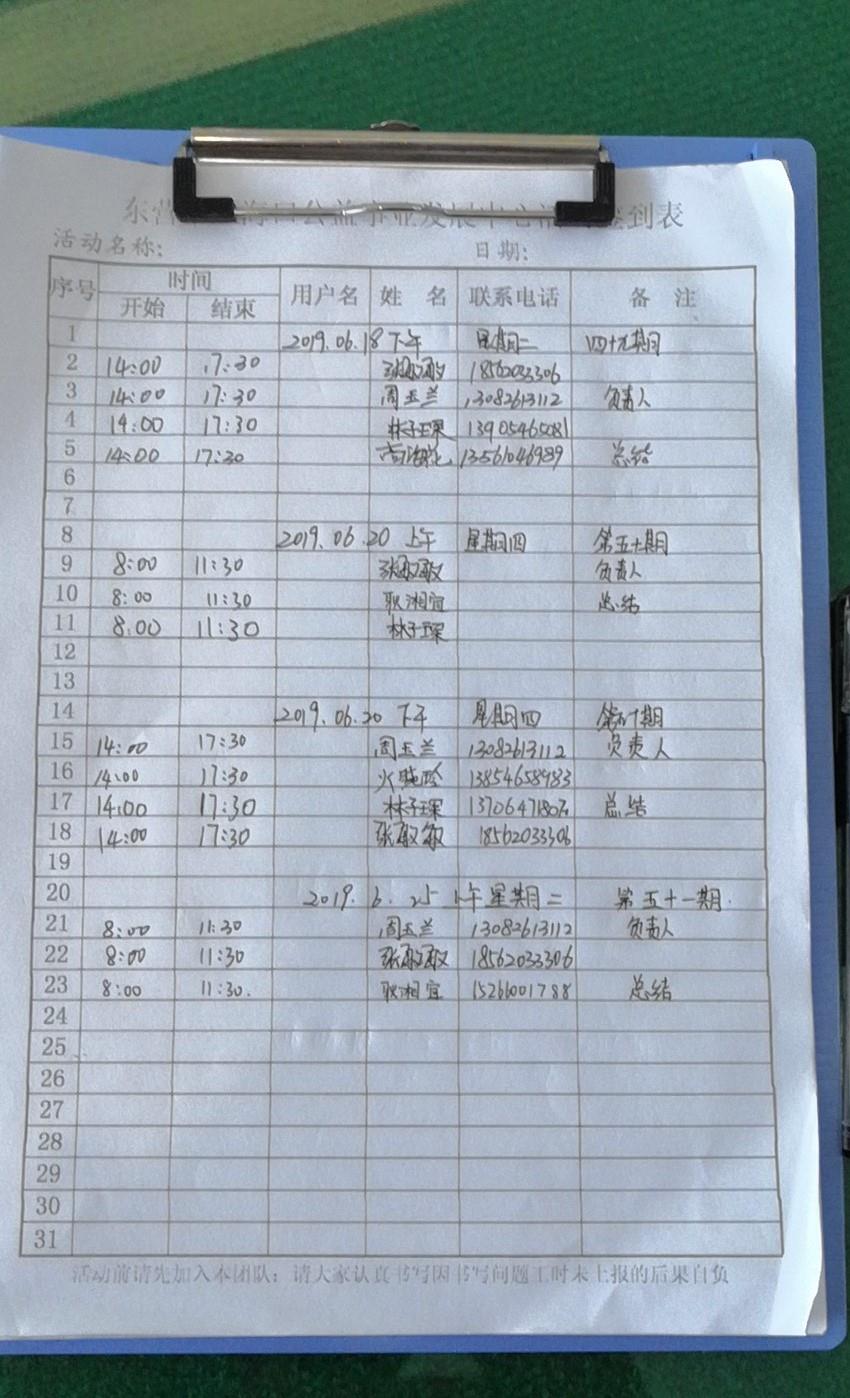 海口公益事业发展中心 签到表
活动名称: 日期:
序号 时间 用户名 姓 名 联系电话 备 注
开始 结束
1 2019.06.18 下午 星期二 四十九期
2 14:00 17:30 张敏敏 18562033306
3 14:00 17:30 周玉兰 13082613112 负责人
4 14:00 17:30 林子琛 13905465081
5 14:00 17:30 13561046989 总结
6
7
8 2019.06.20 上午 星期四 第五十期
9 8:00 11:30 张敏敏 负责人
10 8:00 11:30 耿湘宜 总结
11 8:00 11:30 林子琛
12
13
14 2019.06.20 下午 星期四
15 14:00 17:30 周玉兰 13082613112 负责人
16 14:00 17:30 13854658983
17 14:00 17:30 林子琛 总结
18 14:00 17:30 张敏敏 18562033306
19
20 2019.6.25 上午 星期二 第五十一期.
21 8:00 11:30 周玉兰 13082613112 负责人
22 8:00 11:30 张敏敏 18562033306
23 8:00 11:30. 耿湘宜 15266001788 总结
24
25
26
27
28
29
30
31
活动前请先加入本团队; 请大家认真书写因书写问题工时未上报的后果自负